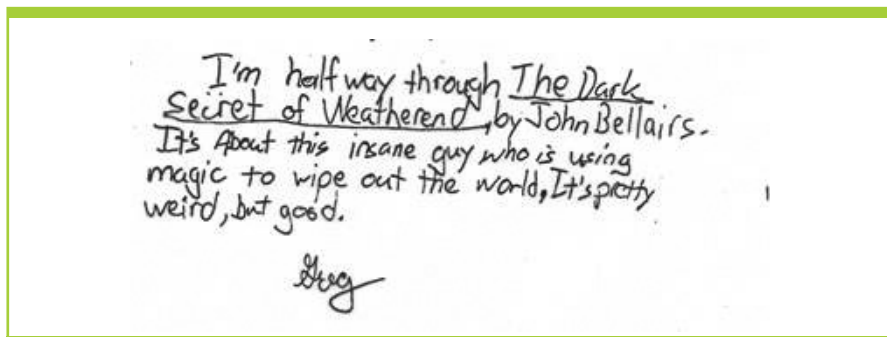 I'm half way through The Dark
Secret of Weatherend, by John Bellairs.
It's About this insane guy who is using
magic to wipe out the world, It's pretty
weird, but good.
Greg